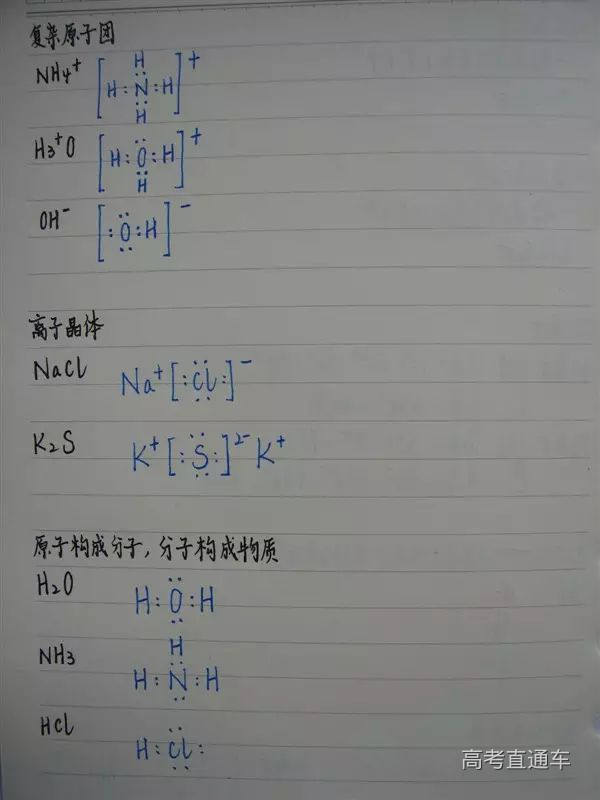 复杂原子团
H
NH4⁺ [H:N̤̈:H]⁺
H
H3⁺O [H:Ö:H]⁺
H
OH⁻ [:Ö̤:H]⁻
离子晶体
NaCl Na⁺[:C̤̈l:]⁻
K2S K⁺[:S̤̈:]²⁻K⁺
原子构成分子,分子构成物质
H2O H:Ö̤:H
H
NH3 H:N̤̈:H
HCl H:C̤̈l:
高考直通车